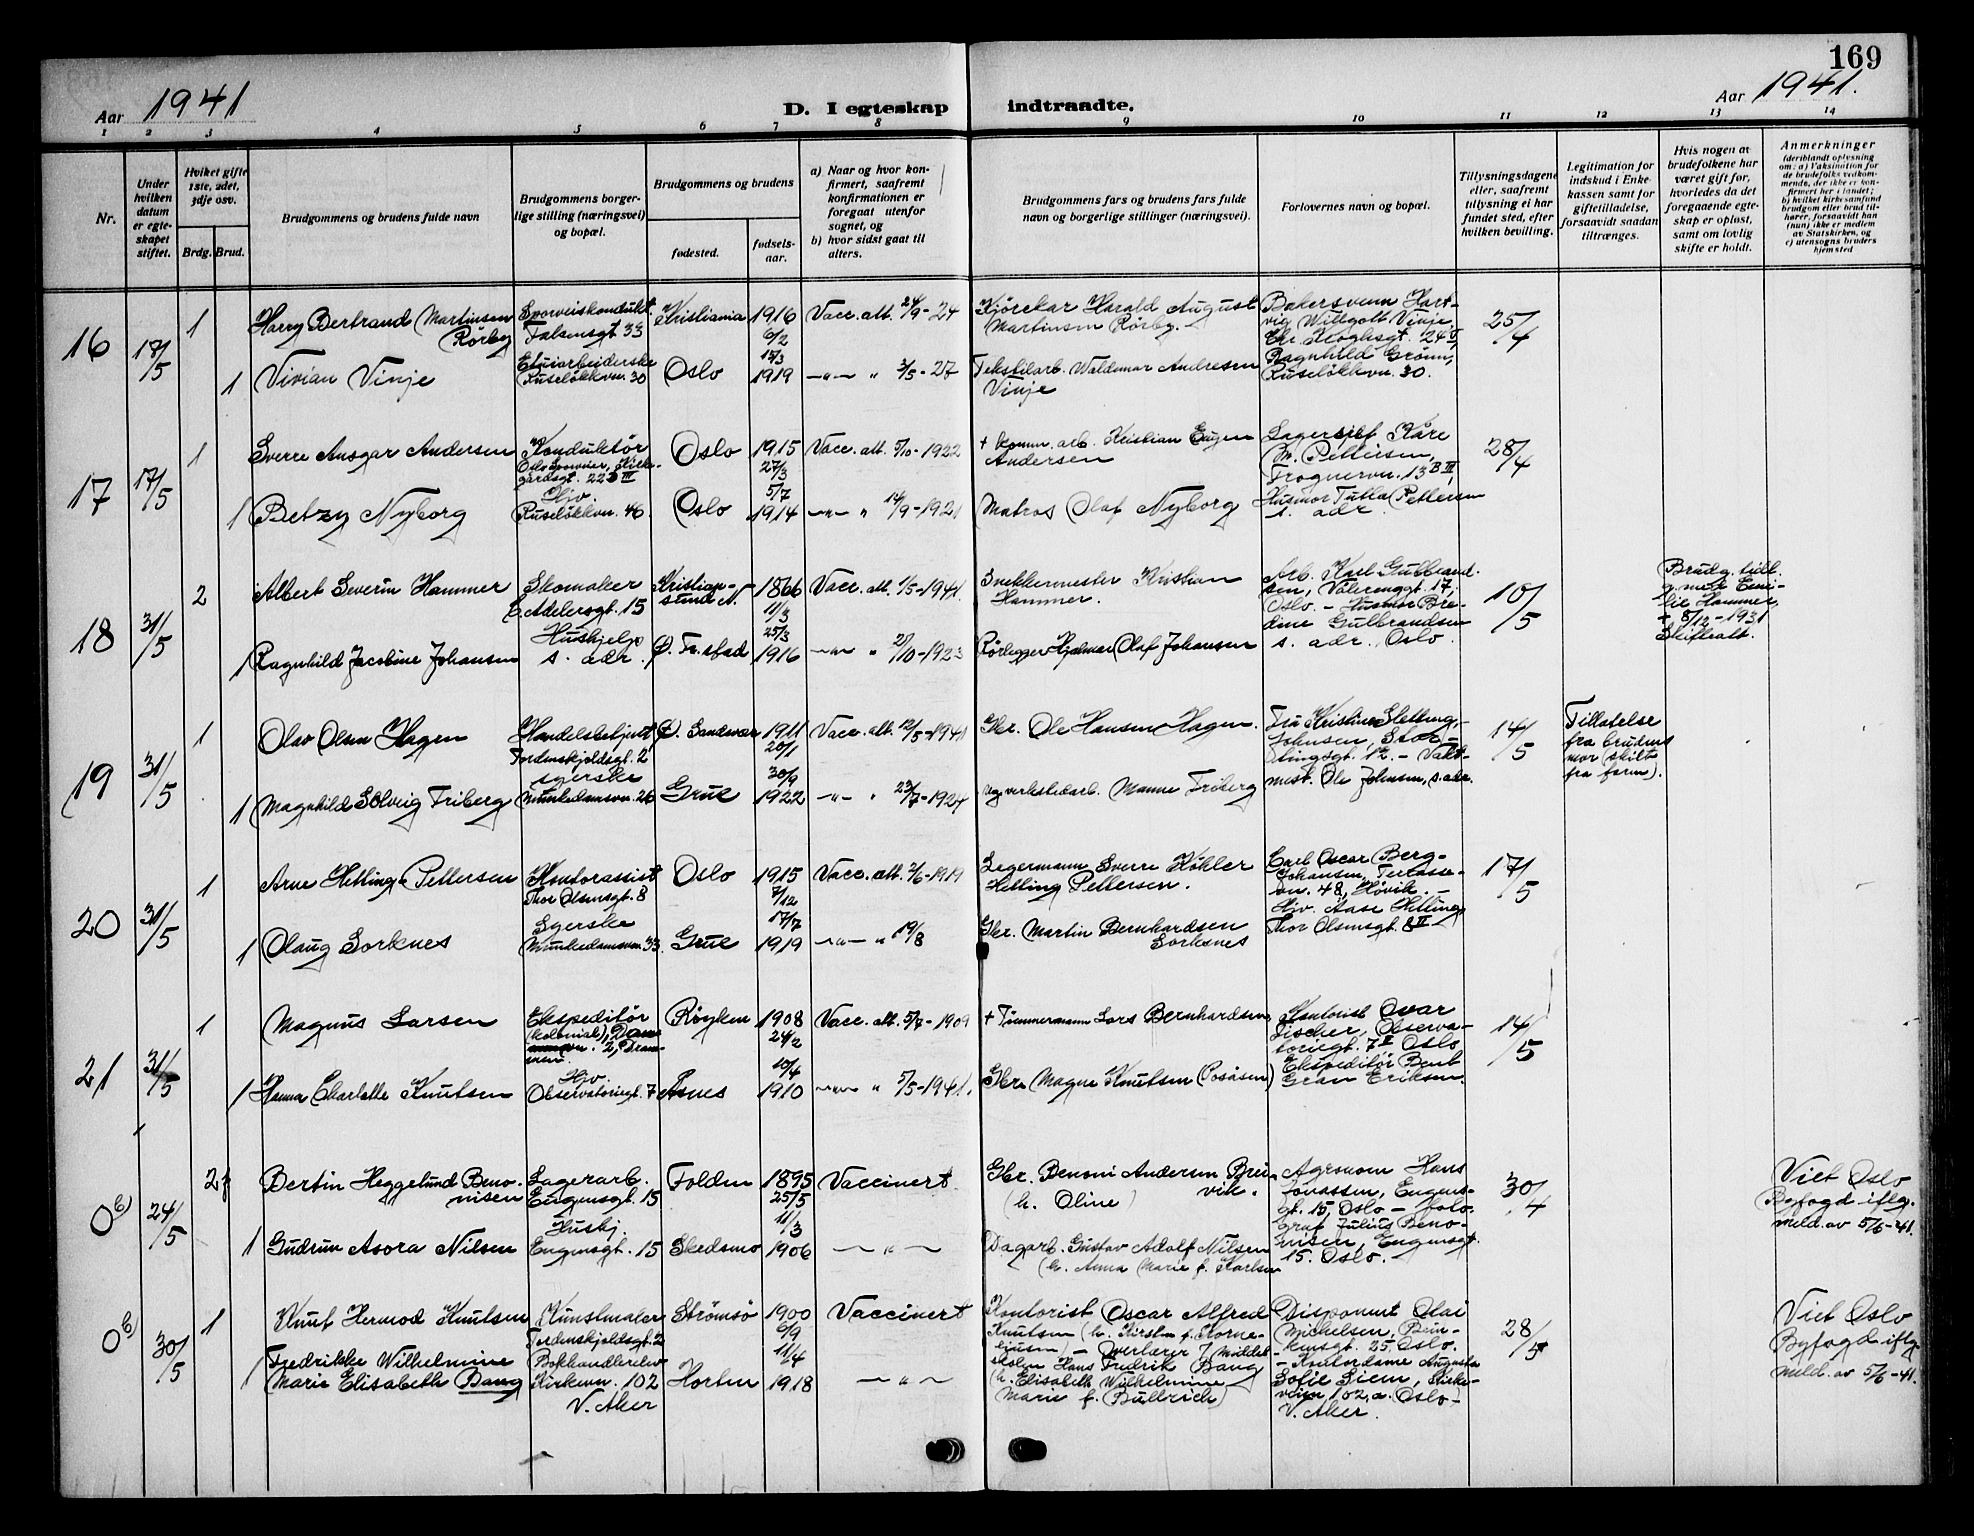 169
Aar 1941
D. I egteskap indtraadte.
Aar 1941.
1 2 3 4 5 6 7 8 9 10 11 12 13 14
Nr.
Under hvilken datum er egte-skapet stiftet.
Hvilket gifte 1ste, 2det, 3dje osv.
Brdg. Brud.
Brudgommens og brudens fulde navn
Brudgommens borger-lige stilling (næringsvei) og bopæl.
Brudgommens og brudens
fødested.
fødsels-aar.
a) Naar og hvor kon-firmert, saafremt konfirmationen er foregaat utenfor sognet, og
b) hvor sidst gaat til alters.
Brudgommens fars og brudens fars fulde navn og borgerlige stillinger (næringsvei).
Forlovernes navn og bopæl.
Tillysningsdagene eller, saafremt tillysning ei har fundet sted, efter hvilken bevilling.
Legitimation for indskud i Enke-kassen samt for giftetilladelse, forsaavidt saadan tiltrænges.
Hvis nogen av brudefolkene har været gift før, hvorledes da det foregaaende egte-skap er opløst, samt om lovlig skifte er holdt.
Anmerkninger
(deriblandt oplysning om: a) Vaksination for de brudefolks vedkom-mende, der ikke er kon-firmert her i landet; b) hvilket kirkesamfund brudgom eller brud til-hører, forsaavidt han (hun) ikke er medlem av Statskirken, og c) utensogns bruders hjemsted
16
18/5
1
Harry Bertrand Martinsen
Rörby
Sporveiskondukt.
Falsensgt 33
Kristiania
1916
6/2
Vacc. alt. 24/9-24
Kjörekar Harald August
Martinsen Rörby.
Bakersvenn Hart-
vig Willgott Vinje,
Chr. Kroghsgt. 24 V,
Ragnhild Grönn,
Ruselökkvn. 30.
25/4
1
Vivian Vinje
Etuiarbeiderske
Ruselökkvn. 30
Oslo
15/3
1919
—"— " 3/5-27
Tekstilarb. Waldemar Andresen
Vinje
17
17/5
1
Sverre Ansgar Andersen
Konduktör
Oslo Sporveier, Kirke-
gårdsgt. 22 b III
Oslo
1915
27/3
Vacc. alt. 5/10-1922
+ komm. arb. Kristian Eugen
Andersen
Lagersjef Kåre
M. Pettersen,
Frognervn. 13 B III,
Husmor Tutta Pettersen
s. adr.
28/4
1
Betzy Nyborg
Hjv.
Ruselökkvn. 46
Oslo
5/7
1914
—"— " 14/9-1921
Matros Olaf Nyborg
18
31/5
2
Albert Severin Hammer
Skomaker
C. Adelersgt. 15
Kristian-
sund N.
1866
11/3
Vacc. alt. 1/5-1941.
Snekkermester Kristian
Hammer.
Arb. Karl Gulbrand-
sen, Vålerenggt. 17,
Oslo. - Husmor Bre-
dine Gulbrandsen
s. adr. Oslo.
10/5
Brudg. tidl.
g. med Emi-
lie Hammer,
+ 8/12-1931
Skifteatt.
1
Ragnhild Jacobine Johansen
Hushjelp
s. adr.
Ø. Fr.stad
25/3
1916
—"— " 21/10-1923
Rörlegger Hjalmar Olaf Johansen
19
31/5
1
Olav Olsen Hagen
Handelsbetjent
Tordenskjoldsgt. 2
Ø. Sandsvær
1911
20/1
Vacc. alt. 12/5-1941
Gbr. Ole Hansen Hagen.
Fru Kristine Sletteng-
Johnsen, Stor-
tingsgt. 12. - Vakt-
mest. Ole Johnsen, s. adr.
14/5
Tillatelse
fra brudens
mor (skilt
fra faren).
1
Magnhild Solveig Friberg
Syerske
Munkedamsvn. 26
Grue
30/9
1922
—"— " 23/7-1924
Veg verkstedarb. Manne Friberg
20
31/5
1
Arne Hetling Pettersen
Kontorassist
Thor Olsensgt. 8
Oslo
1915
7/12
Vacc. att. 2/6-1919
Legermann Sverre Köhler
Hetling Pettersen.
Carl Oscar Berg-
Johansen, Terasse-
vn. 48, Hövik. -
Hjv. Aase Hetling
Thor Olsensgt. 8 II
17/5
1
Olaug Sorknes
Syerske
Munkedamsvn. 33.
Grue
17/7
1919
—"— " 19/8
Gbr. Martin Bernhardsen
Sorknes
21
31/5
1
Magnus Larsen
Ekspeditör
(kolonial), Dram-
2, Dram-
men
Röyken
1908
24/2
Vacc. att. 5/7-1909
+ Tömmermann Lars Bernhardsen
Kontorist Osvar
Fischer, Observa-
toriegt. 7 II Oslo
Ekspeditör Bent
Gran Eriksen.
14/5
1
Hanna Charlotte Knutsen
Hjv.
Observatoriegt. 7
Åsnes
10/4
1910
—"— " 5/5-1941.
Gbr. Magne Knutsen (Posåsen)
0 b)
24/5
2
Bertin Heggelund Beno-
nisen
Lagerarb.
Eugensgt. 15
Folden
1895
25/5
Vaccinert
Gbr. Benoni Andersen Brei-
vik.
(h. Oline)
Agronom Hans
Jonassen, Eugens-
gt. 15, Oslo - foto-
graf Julius Beno-
nisen, Eugensgt.
15. Oslo.
30/4
Viet Oslo
Byfogd iflg.
meld. av 5/6-41.
1
Gudrun Asora Nilsen
Hushj.
Eugensgt. 15
Skedsmo
11/3
1906
— " —
Dagarb. Gustav Adolf Nilsen
(h. Anna Marie f. Karlsen
0 b)
30/5
1
Knut Hermod Knutsen
Kunstmaler
Tordenskjoldsgt. 2
Strömsö
1900
6/9
Vaccinert
Kontorist Oscar Alfred
Knutsen (h. Kirsten f. Korne-
liusen) - Overlærer / Middel-
skolen Hans Fredrik Bang
(h. Elisabeth Wilhelmine
Marie f. Bullrich)
Disponent Olai
Michelsen, Bein-
kensgt. 25, Oslo.
- Kontordame Augusta
Sofie Siem, Kirke-
veien 102, a. Oslo -
V. Aker.
28/5
Viet Oslo
Byfogd iflg.
meld. av 5/6-41.
1
Fredrikke Wilhelmine
Marie Elisabeth Bang
Bokhandlerelev
Kirkevn. 102
V. Aker
Horten
11/4
1918
— " —